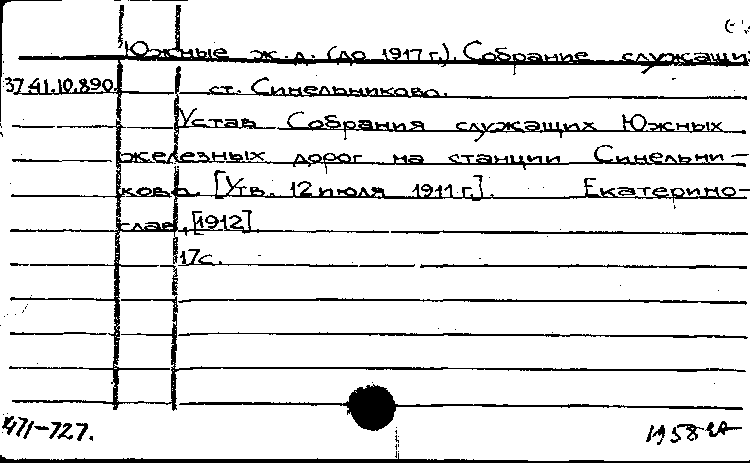 Южные ж.д. (до 1917 г.). Собрание служащи
37.41.10.890. ст. Синельниково.
Устав Собрания служащих Южных
железных дорог на станции Синельни-
ково. [Утв. 12 июля 1911 г.]. Екатерино-
слав, [1912].
17с.
471-727.
1958